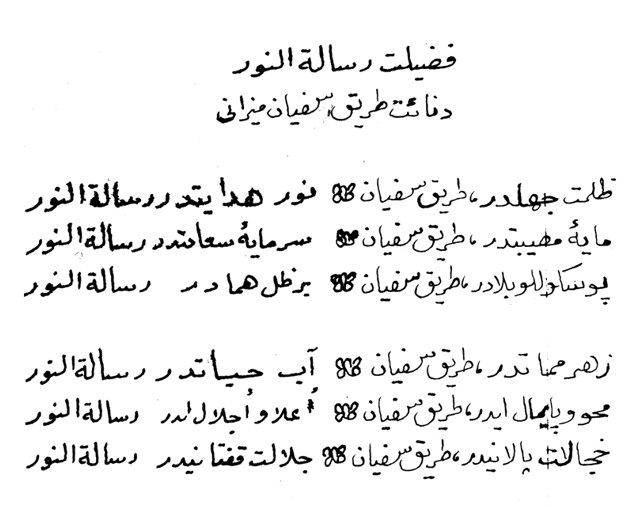 فضيلت رسالة النور
دنائت طريق سفيان ميزانى
ظلمت جهلدر، طريق سفيان نور هدايتدر رسالة النور
مايۀ مصيبتدر، طريق سفيان سرمايۀ سعادتدر رسالة النور
طريق سفيان برظل همادر رسالة النور
زهر مماتدر، طريق سفيان آب حياتدر رسالة النور
محو و پايمال ايدر، طريق سفيان اعلا و اجلال ايدر رسالة النور
پالانيدر، طريق سفيان جلالت قفتانيدر رسالة النور